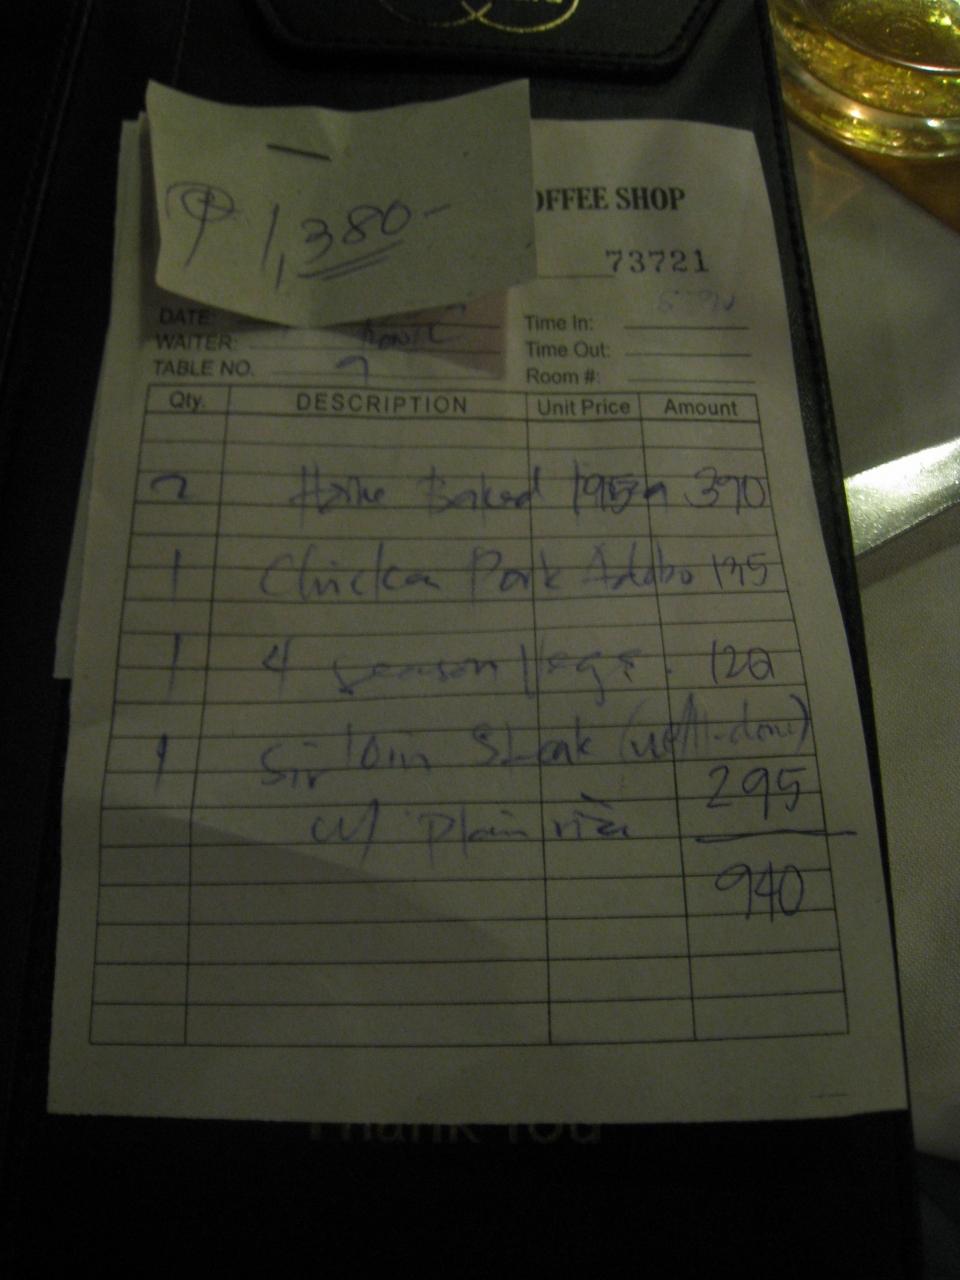 ₱ 1,380-
OFFEE SHOP
73721
DATE:
Time In:
WAITER:
Time Out:
TABLE NO. 7
Room #:
Qty. DESCRIPTION Unit Price Amount
2 Home Baked 195 390
1 Chicken Pork Adobo 135
1 4 season Vegs. 120
1 Sirloin Steak (well-done)
295
w/ plain rice
940
Thank You